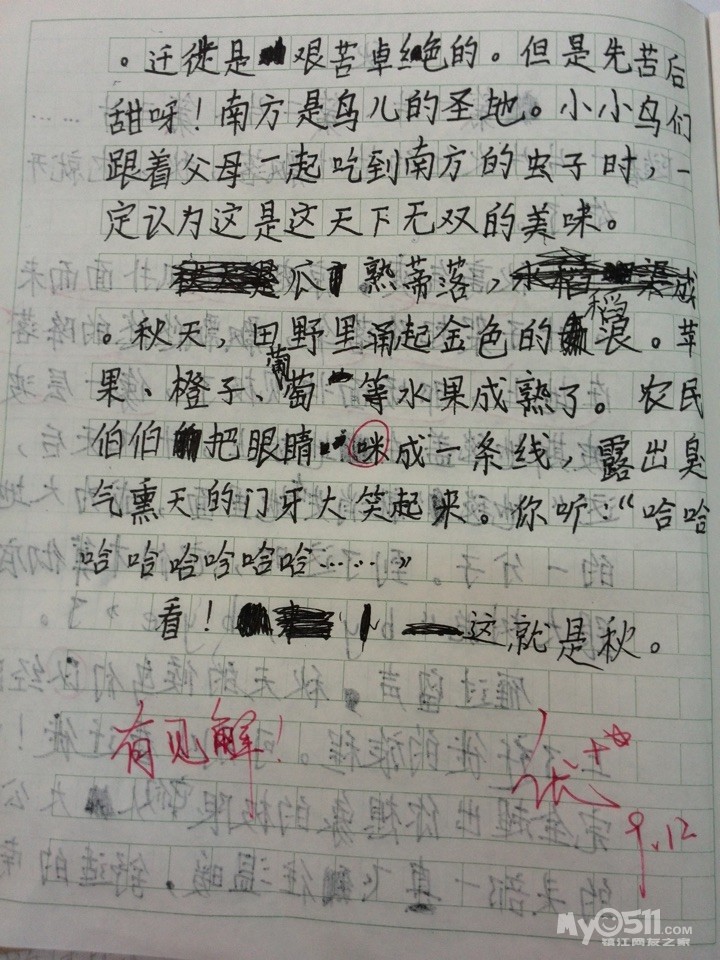 。迁徙是艰苦卓绝的。但是先苦后
甜呀！南方是鸟儿的圣地。小小鸟们
跟着父母一起吃到南方的虫子时，一
定认为这是这天下无双的美味。
瓜熟蒂落，
。秋天，田野里涌起金色的稻浪。苹
果、橙子、葡萄等水果成熟了。农民
伯伯把眼睛咪成一条线，露出臭
气熏天的门牙大笑起来。你听：“哈哈
哈哈哈哈哈哈……”
看！这就是秋。
有见解！
优+☆
9.12
My0511.com
镇江网友之家